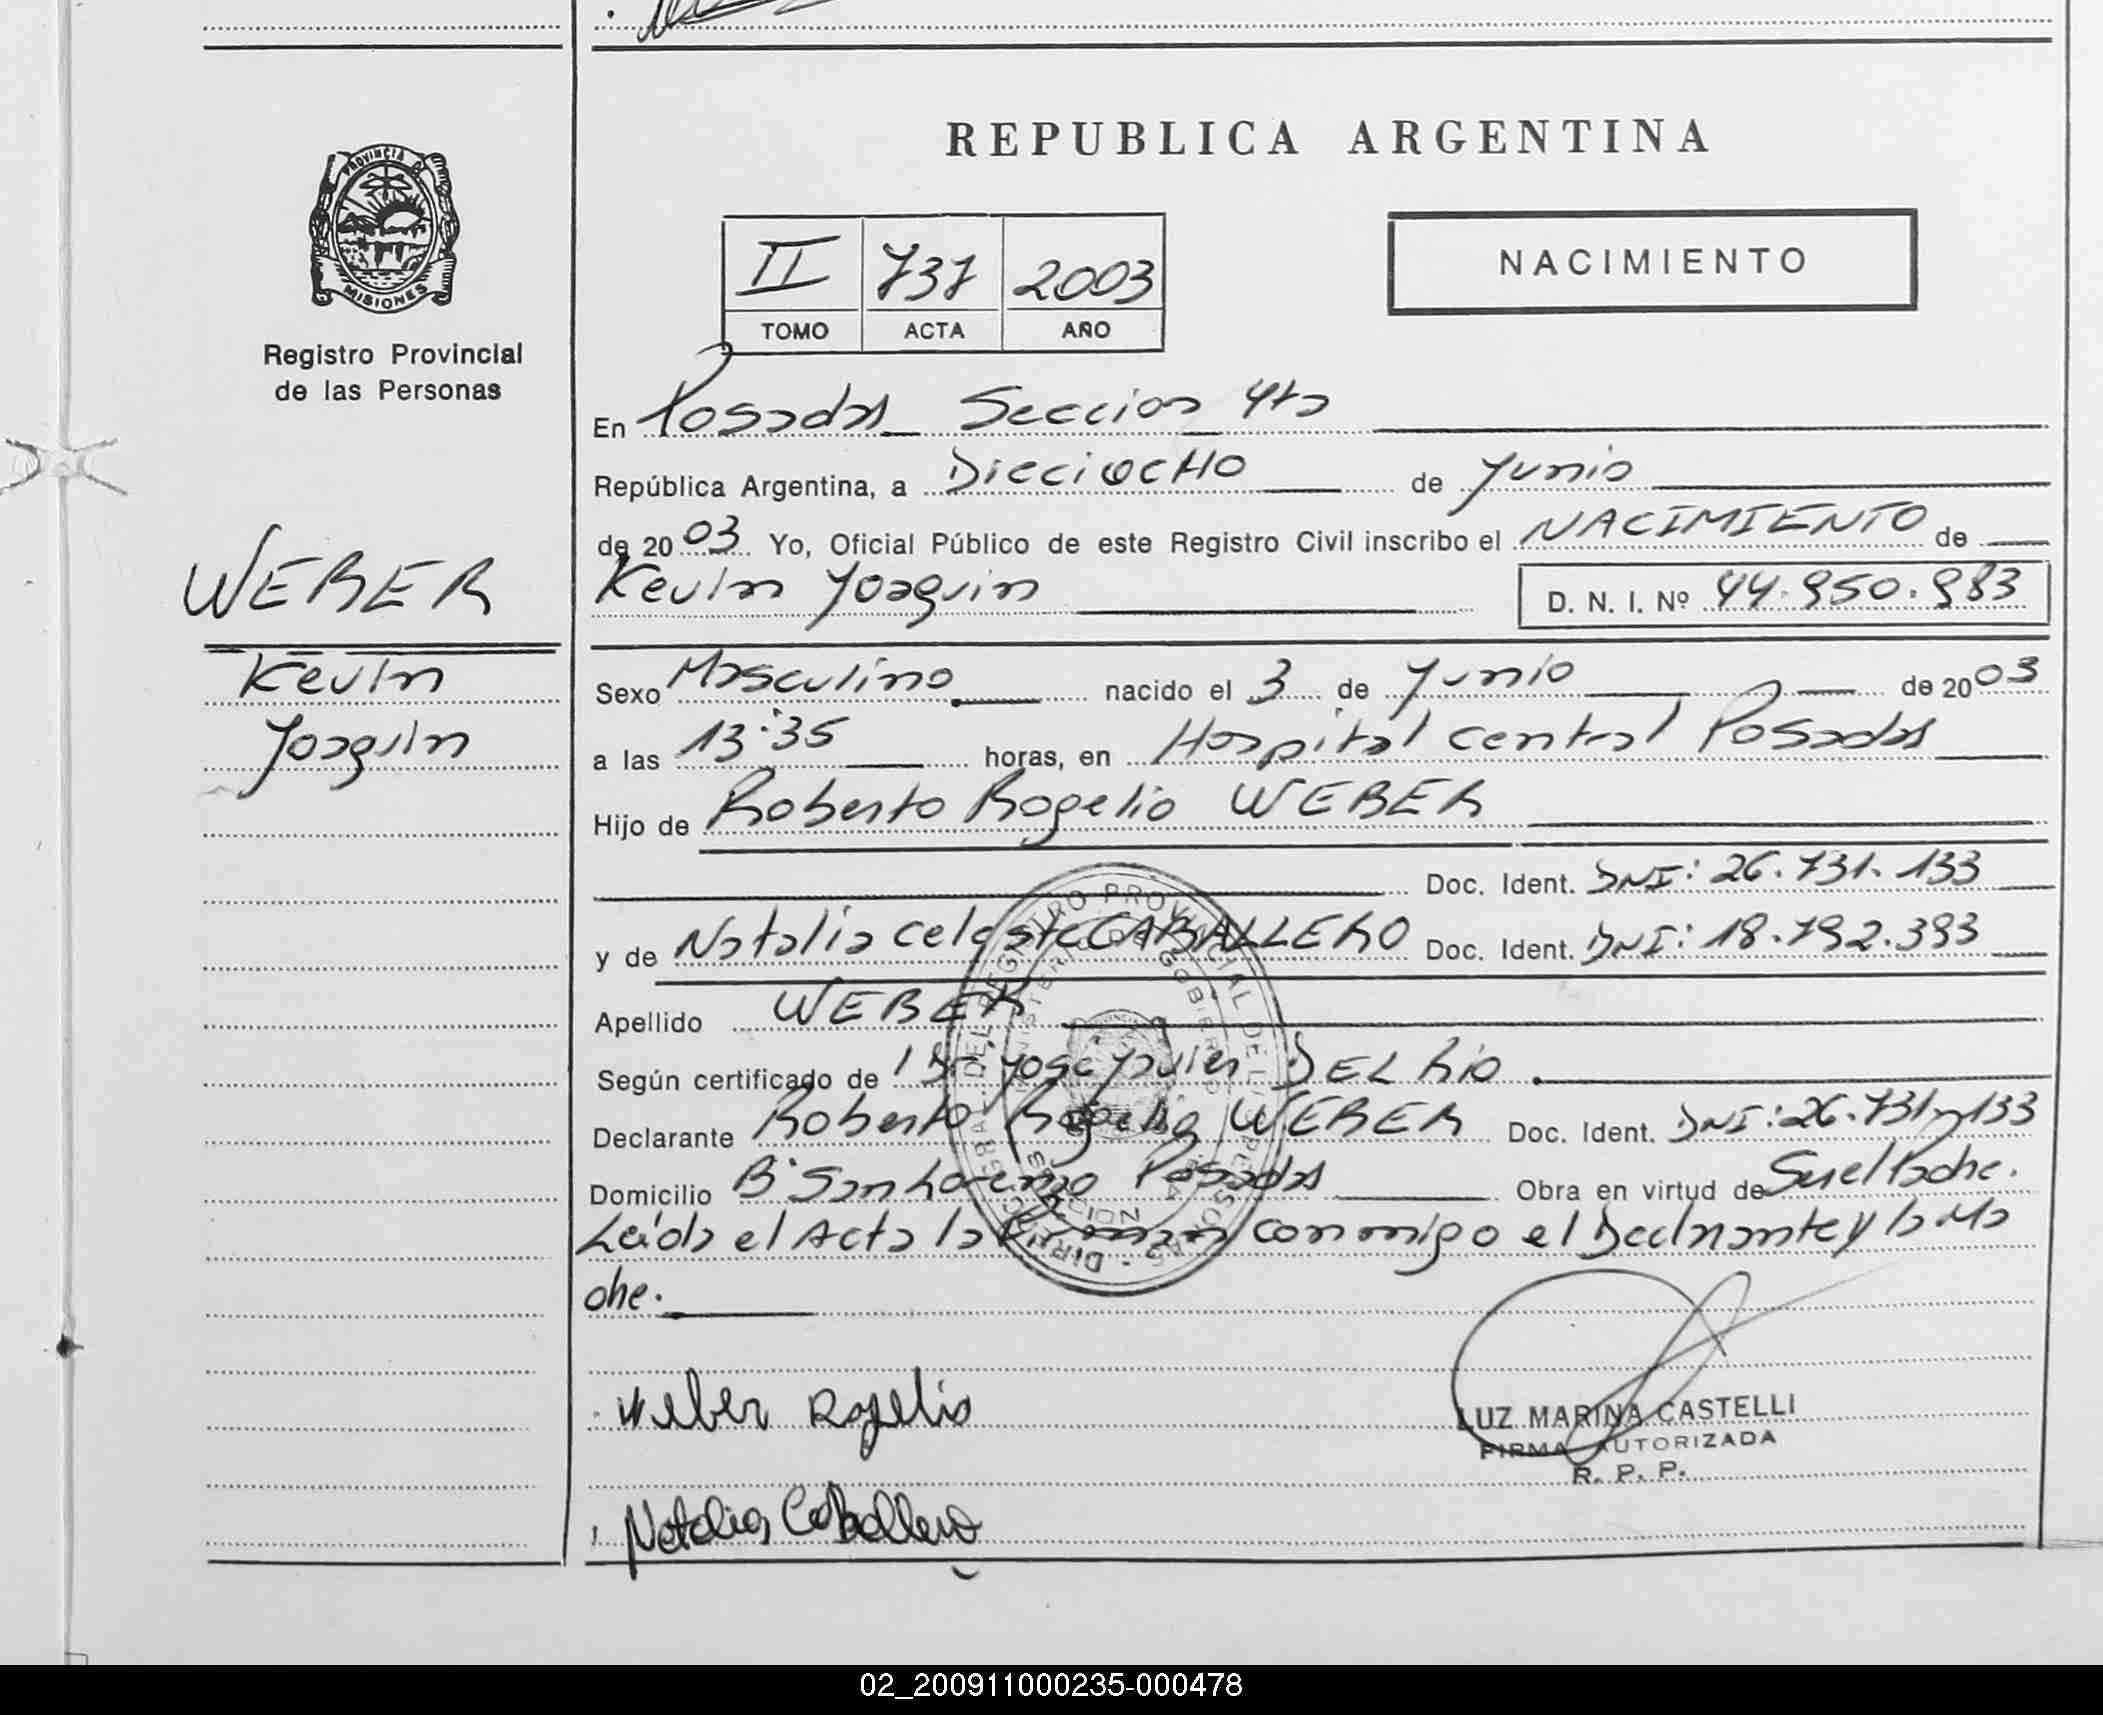 REPUBLICA ARGENTINA
PROVINCIA DE
MISIONES
Registro Provincial
de las Personas
II 737 2003
TOMO ACTA AÑO
NACIMIENTO
En Posadas Seccion 4ta
República Argentina, a DieciocHo de Junio
de 2003 Yo, Oficial Público de este Registro Civil inscribo el NACIMIENTO de
Kevin Joaquin D. N. I. Nº 44.950.983
WEBER
Kevin
Joaquin
Sexo Masculino nacido el 3 de Junio de 2003
a las 13:35 horas, en Hospital Central Posadas
Hijo de Roberto Rogelio WEBER
Doc. Ident. DNI: 26.731.133
y de Natalia Celeste CABALLERO Doc. Ident. DNI: 18.792.393
Apellido WEBER
Según certificado de Dr. Jose Javier DEL Rio.
Declarante Roberto Rogelio WEBER Doc. Ident. DNI: 26.731.133
Domicilio Bº San Lorenzo Posadas Obra en virtud de Ser el Padre.
Leida el Acta la Firman conmigo el Declarante y la Ma
dre.
Weber Rogelio
LUZ MARINA CASTELLI
FIRMA AUTORIZADA
R. P. P.
Natalia Caballero
02_200911000235-000478